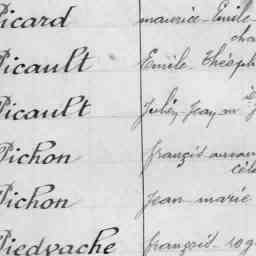 Picard maurice-Emile
Picault Emile Théoph
Picault Julien Jean m
Pichon françois
Pichon Jean marie
Piedvache françois